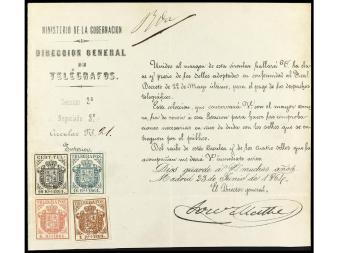 MINISTERIO DE LA GOBERNACION
DIRECCION GENERAL
DE
TELÉGRAFOS.
Seccion 2ª
Negociado 3º
Circular Nº 21.
Exterior
Unidos al margen de esta circular hallará Vd. la cla
se y precio de los sellos adoptados en conformidad al Real
Decreto de 22 de Mayo último, para el pago de los despachos
telegráficos.
Esta coleccion, que conservará Vd. con el mayor esme
ro, ha de servir á esa Estacion para hacer las comproba
ciones necesarias en caso de duda con los sellos que se en
treguen por el público.
Del recibo de esta Circular y de los cuatro sellos que la
acompañan me dará Vd. inmediato aviso.
Dios guarde á Vd. muchos años
Madrid 23 de Junio de 1864.
El Director general,
TELEGRAFOS
TELEGRAFOS
TELEGRAFOS